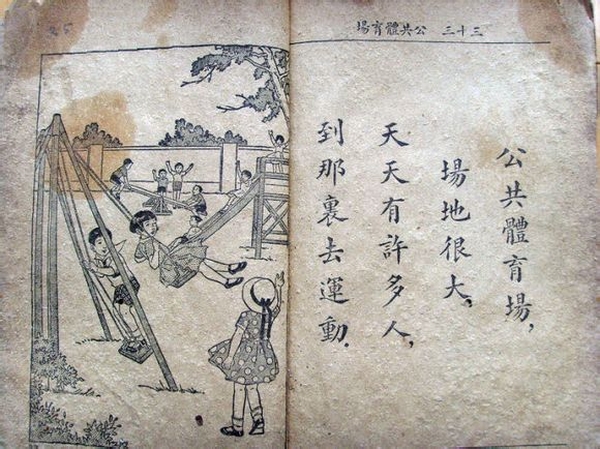 三十三 公共體育場
公共體育場,
場地很大,
天天有許多人,
到那裏去運動.